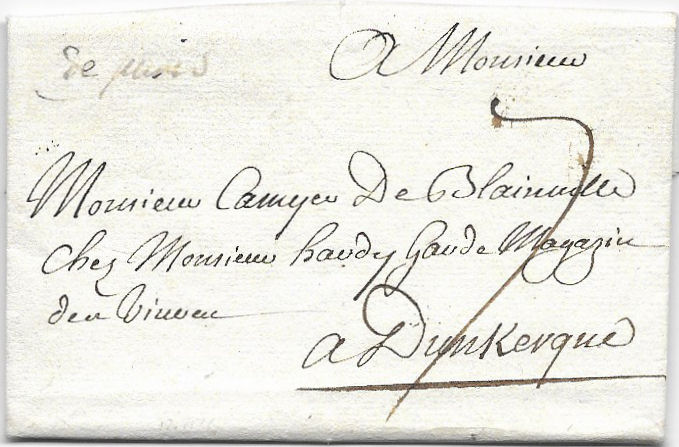 De
A Monsieur
7
Monsieur Camyer De Blainville
chez Monsieur hardy Garde Magazin
der Vivres
a Dunkerque